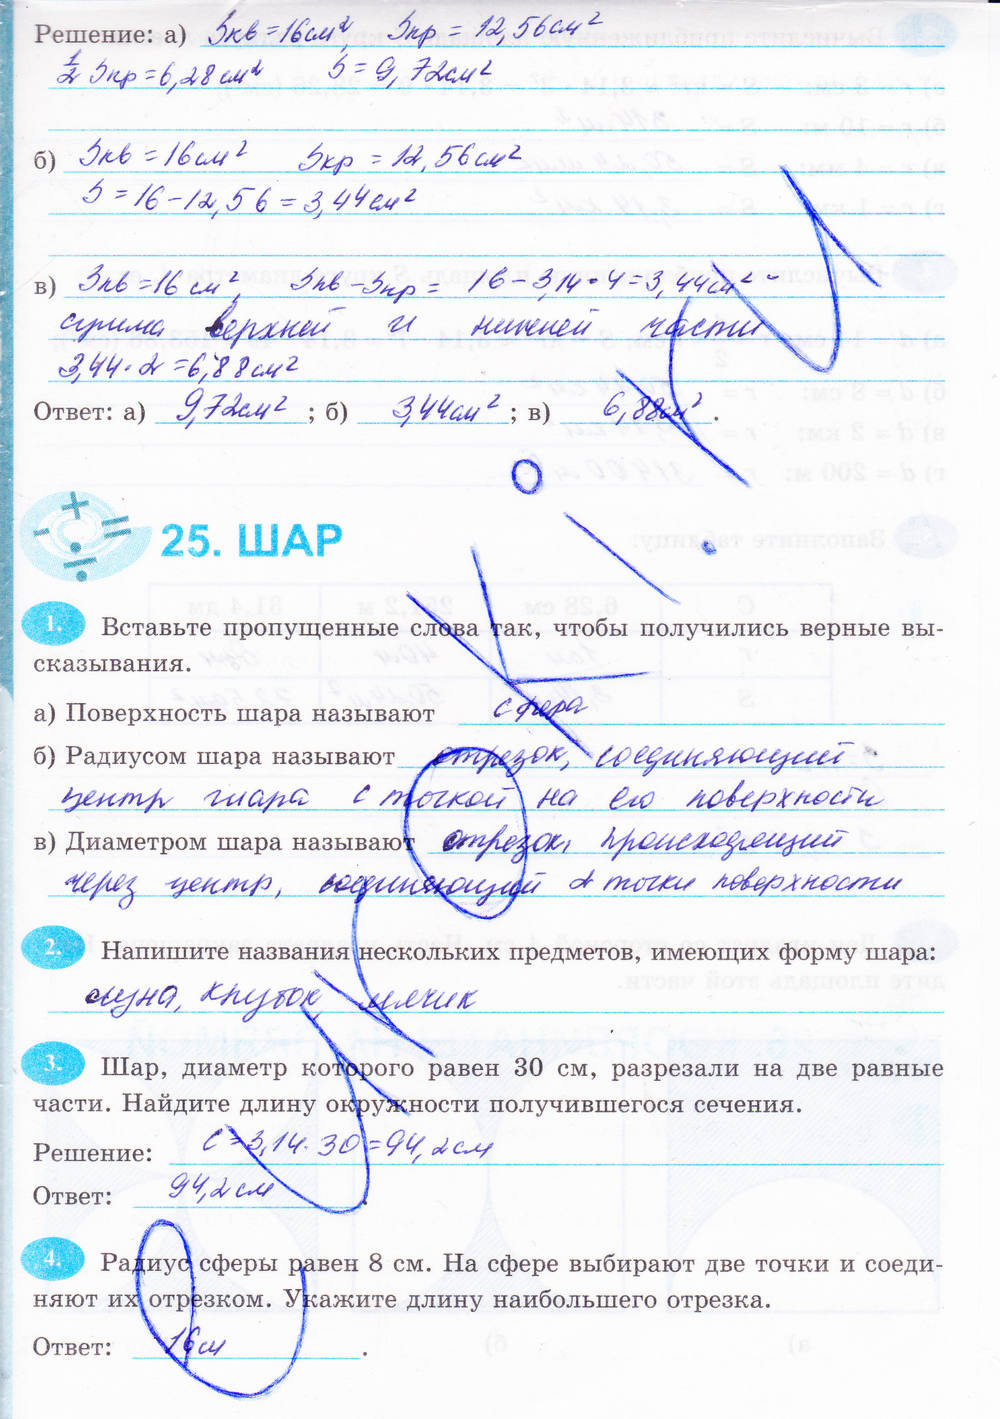 Решение: а) Sкв = 16 см², Sкр = 12,56 см²
1/2 Sкр = 6,28 см² S = 9,72 см²
б) Sкв = 16 см² Sкр = 12,56 см²
S = 16 - 12,56 = 3,44 см²
в) Sкв = 16 см², Sкв - Sкр = 16 - 3,14 · 4 = 3,44 см² -
верхней и нижней части
3,44 · 2 = 6,88 см²
Ответ: а) 9,72 см² ; б) 3,44 см² ; в) 6,88 см² .
25. ШАР
1. Вставьте пропущенные слова так, чтобы получились верные вы-
сказывания.
а) Поверхность шара называют сфера
б) Радиусом шара называют отрезок, соединяющий
центр шара с точкой на его поверхности
в) Диаметром шара называют отрезок,
через центр, соединяющий 2 точки поверхности
2. Напишите названия нескольких предметов, имеющих форму шара:
луна, клубок, мячик
3. Шар, диаметр которого равен 30 см, разрезали на две равные
части. Найдите длину окружности получившегося сечения.
Решение: C = 3,14 · 30 = 94,2 см
Ответ: 94,2 см .
4. Радиус сферы равен 8 см. На сфере выбирают две точки и соеди-
няют их отрезком. Укажите длину наибольшего отрезка.
Ответ: 16 см .